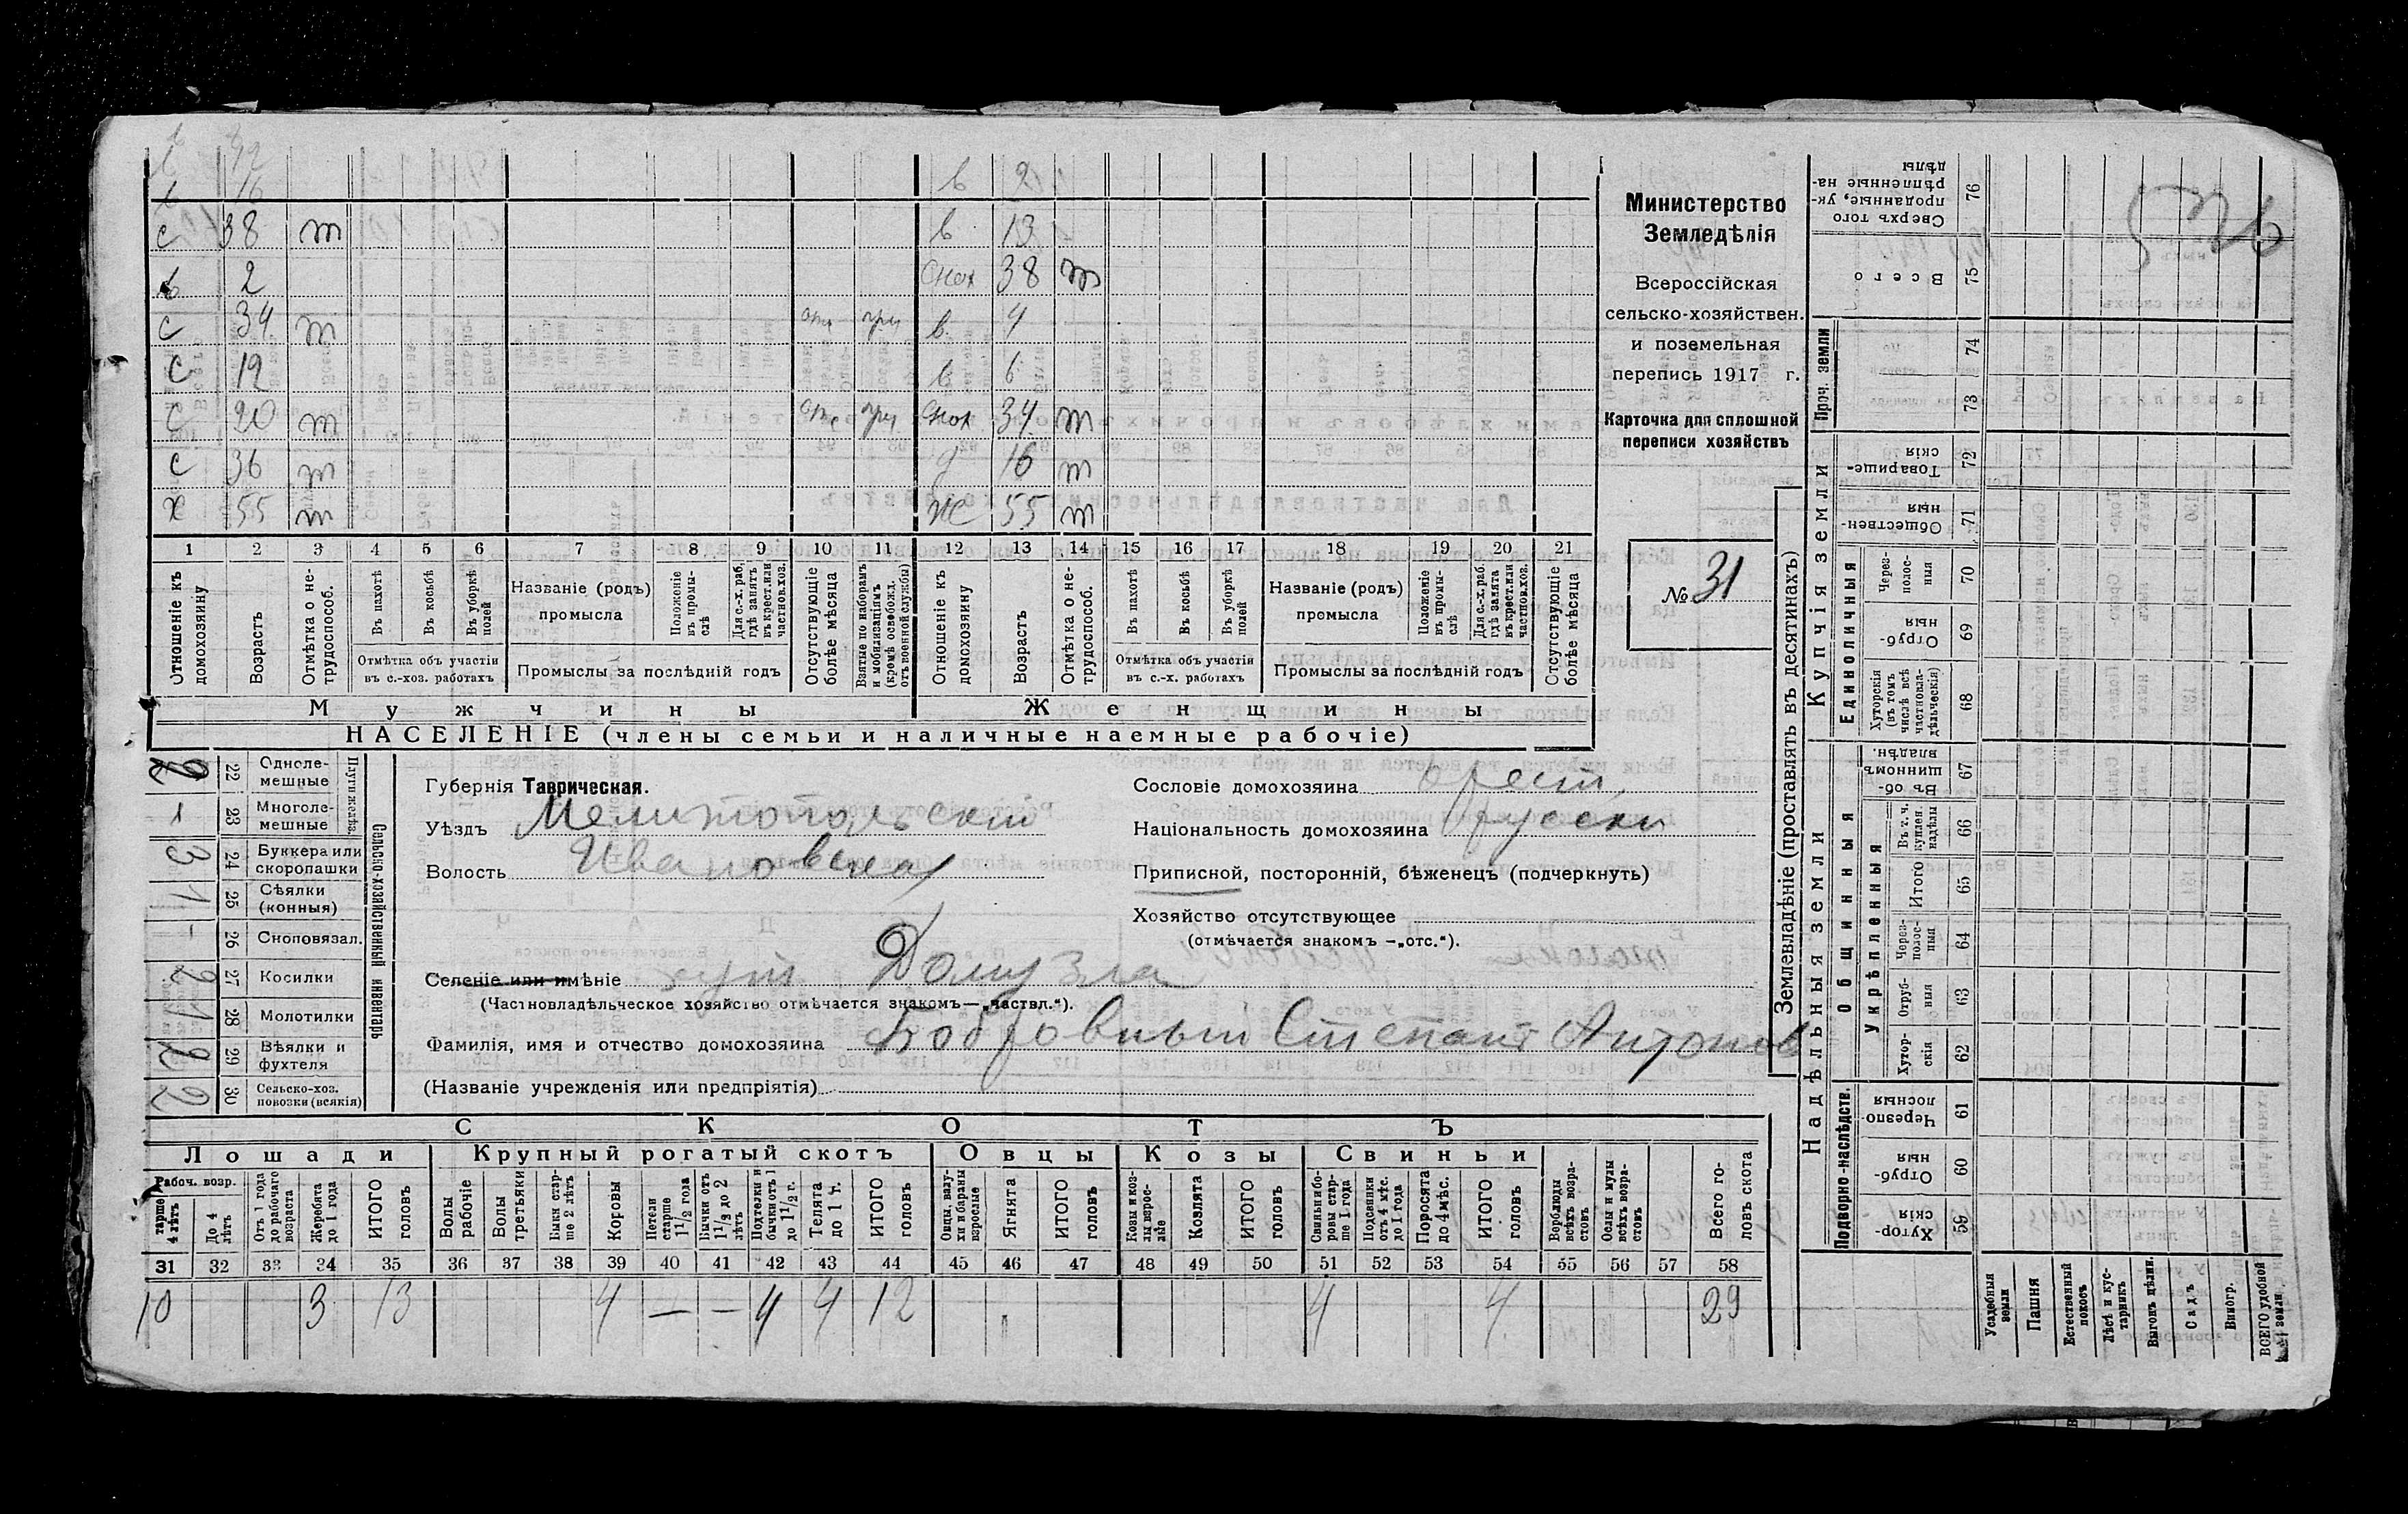 в 42
в 16 в 2
с 38 т в 13
в 2 снох 38 т
с 34 т в 9
с 19 в 6
с 20 т снох 34 т
с 36 т д 16 т
х 55 т ж 55 т
1 2 3 4 5 6 7 8 9 10 11 12 13 14 15 16 17 18 19 20 21
Отношеніе къ домохозяину
Возрастъ
Отмѣтка о не-трудоспособ.
Въ пахотѣ
Въ косьбѣ
Въ уборкѣ полей
Отмѣтка объ участіи
въ с.-хоз. работахъ
Названіе (родъ)
промысла
Положеніе въ промы-слѣ
Для с.-х. раб. гдѣ занятъ въ крест. или частнов. хоз.
Промыслы за послѣдній годъ
Отсутствующіе болѣе мѣсяца
Взятые по наборамъ и мобилизаціямъ (кромѣ освобожд. отъ военной службы)
Отношеніе къ домохозяину
Возрастъ
Отмѣтка о не-трудоспособ.
Въ пахотѣ
Въ косьбѣ
Въ уборкѣ полей
Отмѣтка объ участіи
въ с.-х. работахъ
Названіе (родъ)
промысла
Положеніе въ промы-слѣ
Для с.-х. раб. гдѣ занята въ крест. или частнов. хоз.
Промыслы за послѣдній годъ
Отсутствующіе болѣе мѣсяца
Мужчины Женщины
НАСЕЛЕНІЕ (члены семьи и наличные наемные рабочіе)
Министерство
Земледѣлія
Всероссійская
сельско-хозяйствен.
и поземельная
перепись 1917 г.
Карточка для сплошной
переписи хозяйствъ
№ 31
2 22 Одноле-мешные
23 Многоле-мешные
Плуги желѣз.
3 24 Буккера или скоропашки
1 25 Сѣялки (конныя)
- 26 Сноповязал.
2 27 Косилки
1 28 Молотилки
2 29 Вѣялки и фухтеля
2 30 Сельско-хоз. повозки (всякія)
Сельско-хозяйственный инвентарь
Губернія Таврическая.
Уѣздъ Мелитопольскій
Волость Ивановская
Селеніе или имѣніе хут Домузла
(Частновладѣльческое хозяйство отмѣчается знакомъ—„частвл.“).
Фамилія, имя и отчество домохозяина Бобровный Степанъ Антонов
(Названіе учрежденія или предпріятія)
Сословіе домохозяина крест.
Національность домохозяина русски
Приписной, посторонній, бѣженецъ (подчеркнуть)
Хозяйство отсутствующее
(отмѣчается знакомъ —„отс.“).
СКОТЪ
Лошади Крупный рогатый скотъ Овцы Козы Свиньи
Рабоч. возр.
тарше 4 лѣтъ
До 4 лѣтъ
Отъ 1 года до рабочаго возраста
Жеребята до 1 года
ИТОГО головъ
Волы рабочіе
Волы третьяки
Быки стар-ше 2 лѣтъ
Коровы
Нетели старше 1 1/2 года
Бычки отъ 1 1/2 до 2 лѣтъ
Подтелки и бычки отъ 1 до 1 1/2 г.
Телята до 1 г.
ИТОГО головъ
Овцы, валу-хи и бараны взрослые
Ягнята
ИТОГО головъ
Козы и коз-лы взрос-лые
Козлята
ИТОГО головъ
Свиньи и бо-ровы стар-ше 1 года
Подсвинки отъ 4 мѣс. до 1 года
Поросята до 4 мѣс.
ИТОГО головъ
Верблюды всѣхъ возра-стовъ
Ослы и мулы всѣхъ возра-стовъ
Всего го-ловъ скота
31 32 33 34 35 36 37 38 39 40 41 42 43 44 45 46 47 48 49 50 51 52 53 54 55 56 57 58
10 3 13 4 — — 4 4 12 4 4 29
Землевладѣніе (проставлять въ десятинахъ)
Надѣльныя земли Купчія земли Проч. земли
Подворно-наслѣдств. Общинныя Единоличныя
Укрѣпленныя
Сверхъ того проданные, ук-рѣпленные на-дѣлы 76
Всего 75
74
73
Товарище-скія 72
Обществен-ныя 71
Через-полос-ныя 70
Отруб-ныя 69
Хуторскія (въ томъ числѣ всѣ частновла-дѣльческія) 68
Въ об-щинномъ владѣн. 67
Въ т. ч. куплен. надѣлы 66
Итого 65
Через-полос-ныя 64
Отруб-ныя 63
Хутор-скія 62
Черезпо-лосныя 61
Отруб-ныя 60
Хутор-скія 59
Усадебныя земли
Пашня
Естественный покосъ
Лѣсъ и кус-тарникъ
Выгонъ цѣлин.
Садъ
Виногр.
ВСЕГО удобной земли